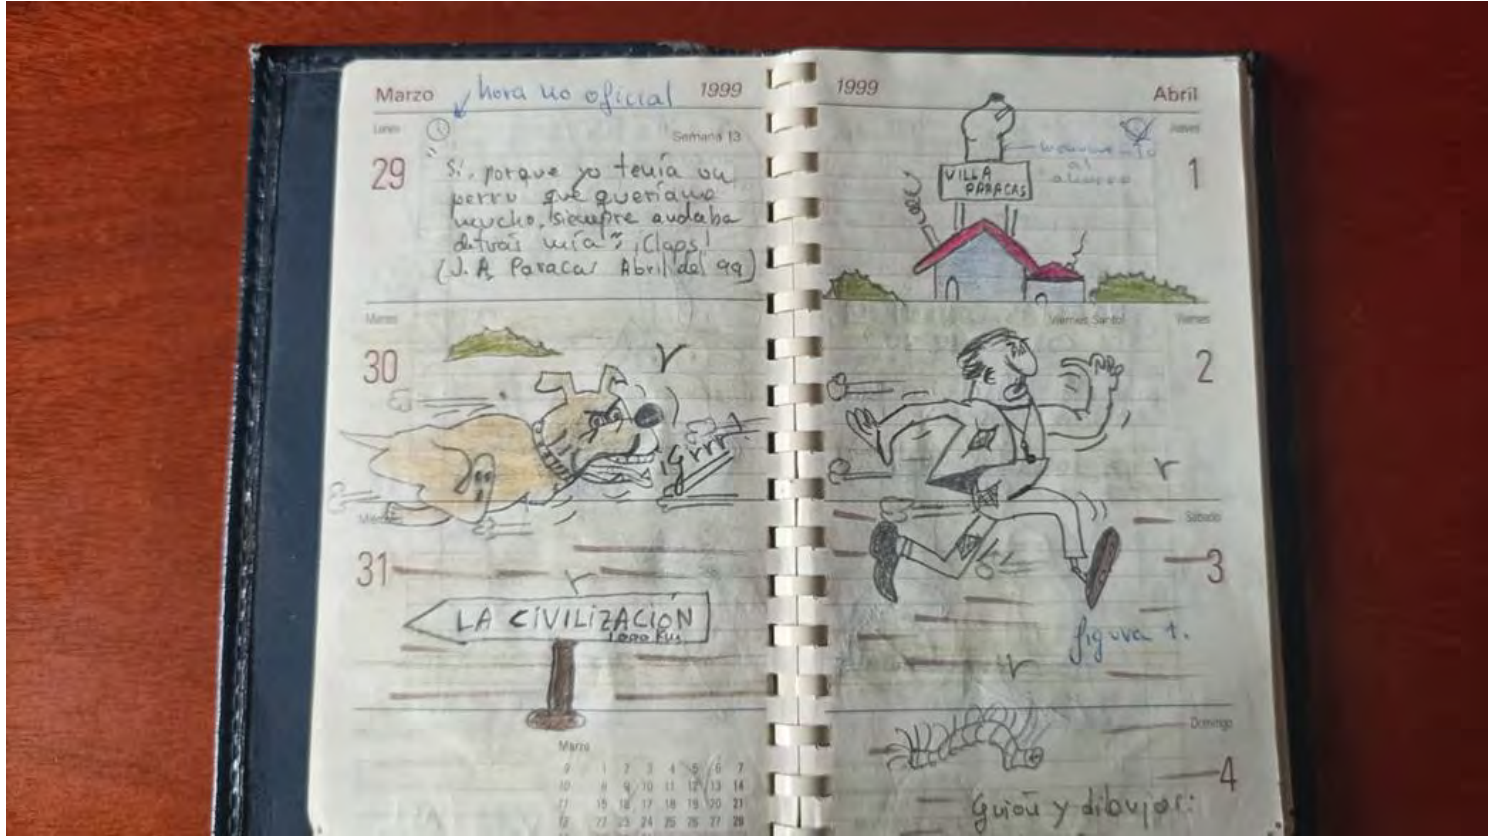 Marzo
hora no oficial
1999
Lunes
Semana 13
29
"Si, porque yo tenía un
perro que queríamos
mucho, siempre andaba
detrás mía" ¡Claps!
(J. A. Paracas Abril del 99)
Martes
30
r
¡Grrr!
Miércoles
31
r
LA CIVILIZACIÓN
1000 Km
Marzo
9 1 2 3 4 5 6 7
10 8 9 10 11 12 13 14
11 15 16 17 18 19 20 21
12 22 23 24 25 26 27 28
1999
Abril
Jueves
1
al
VILLA
PARACAS
Viernes Santo
Viernes
2
r
Sábado
3
figura 1.
r
Domingo
4
Guión y dibujos: